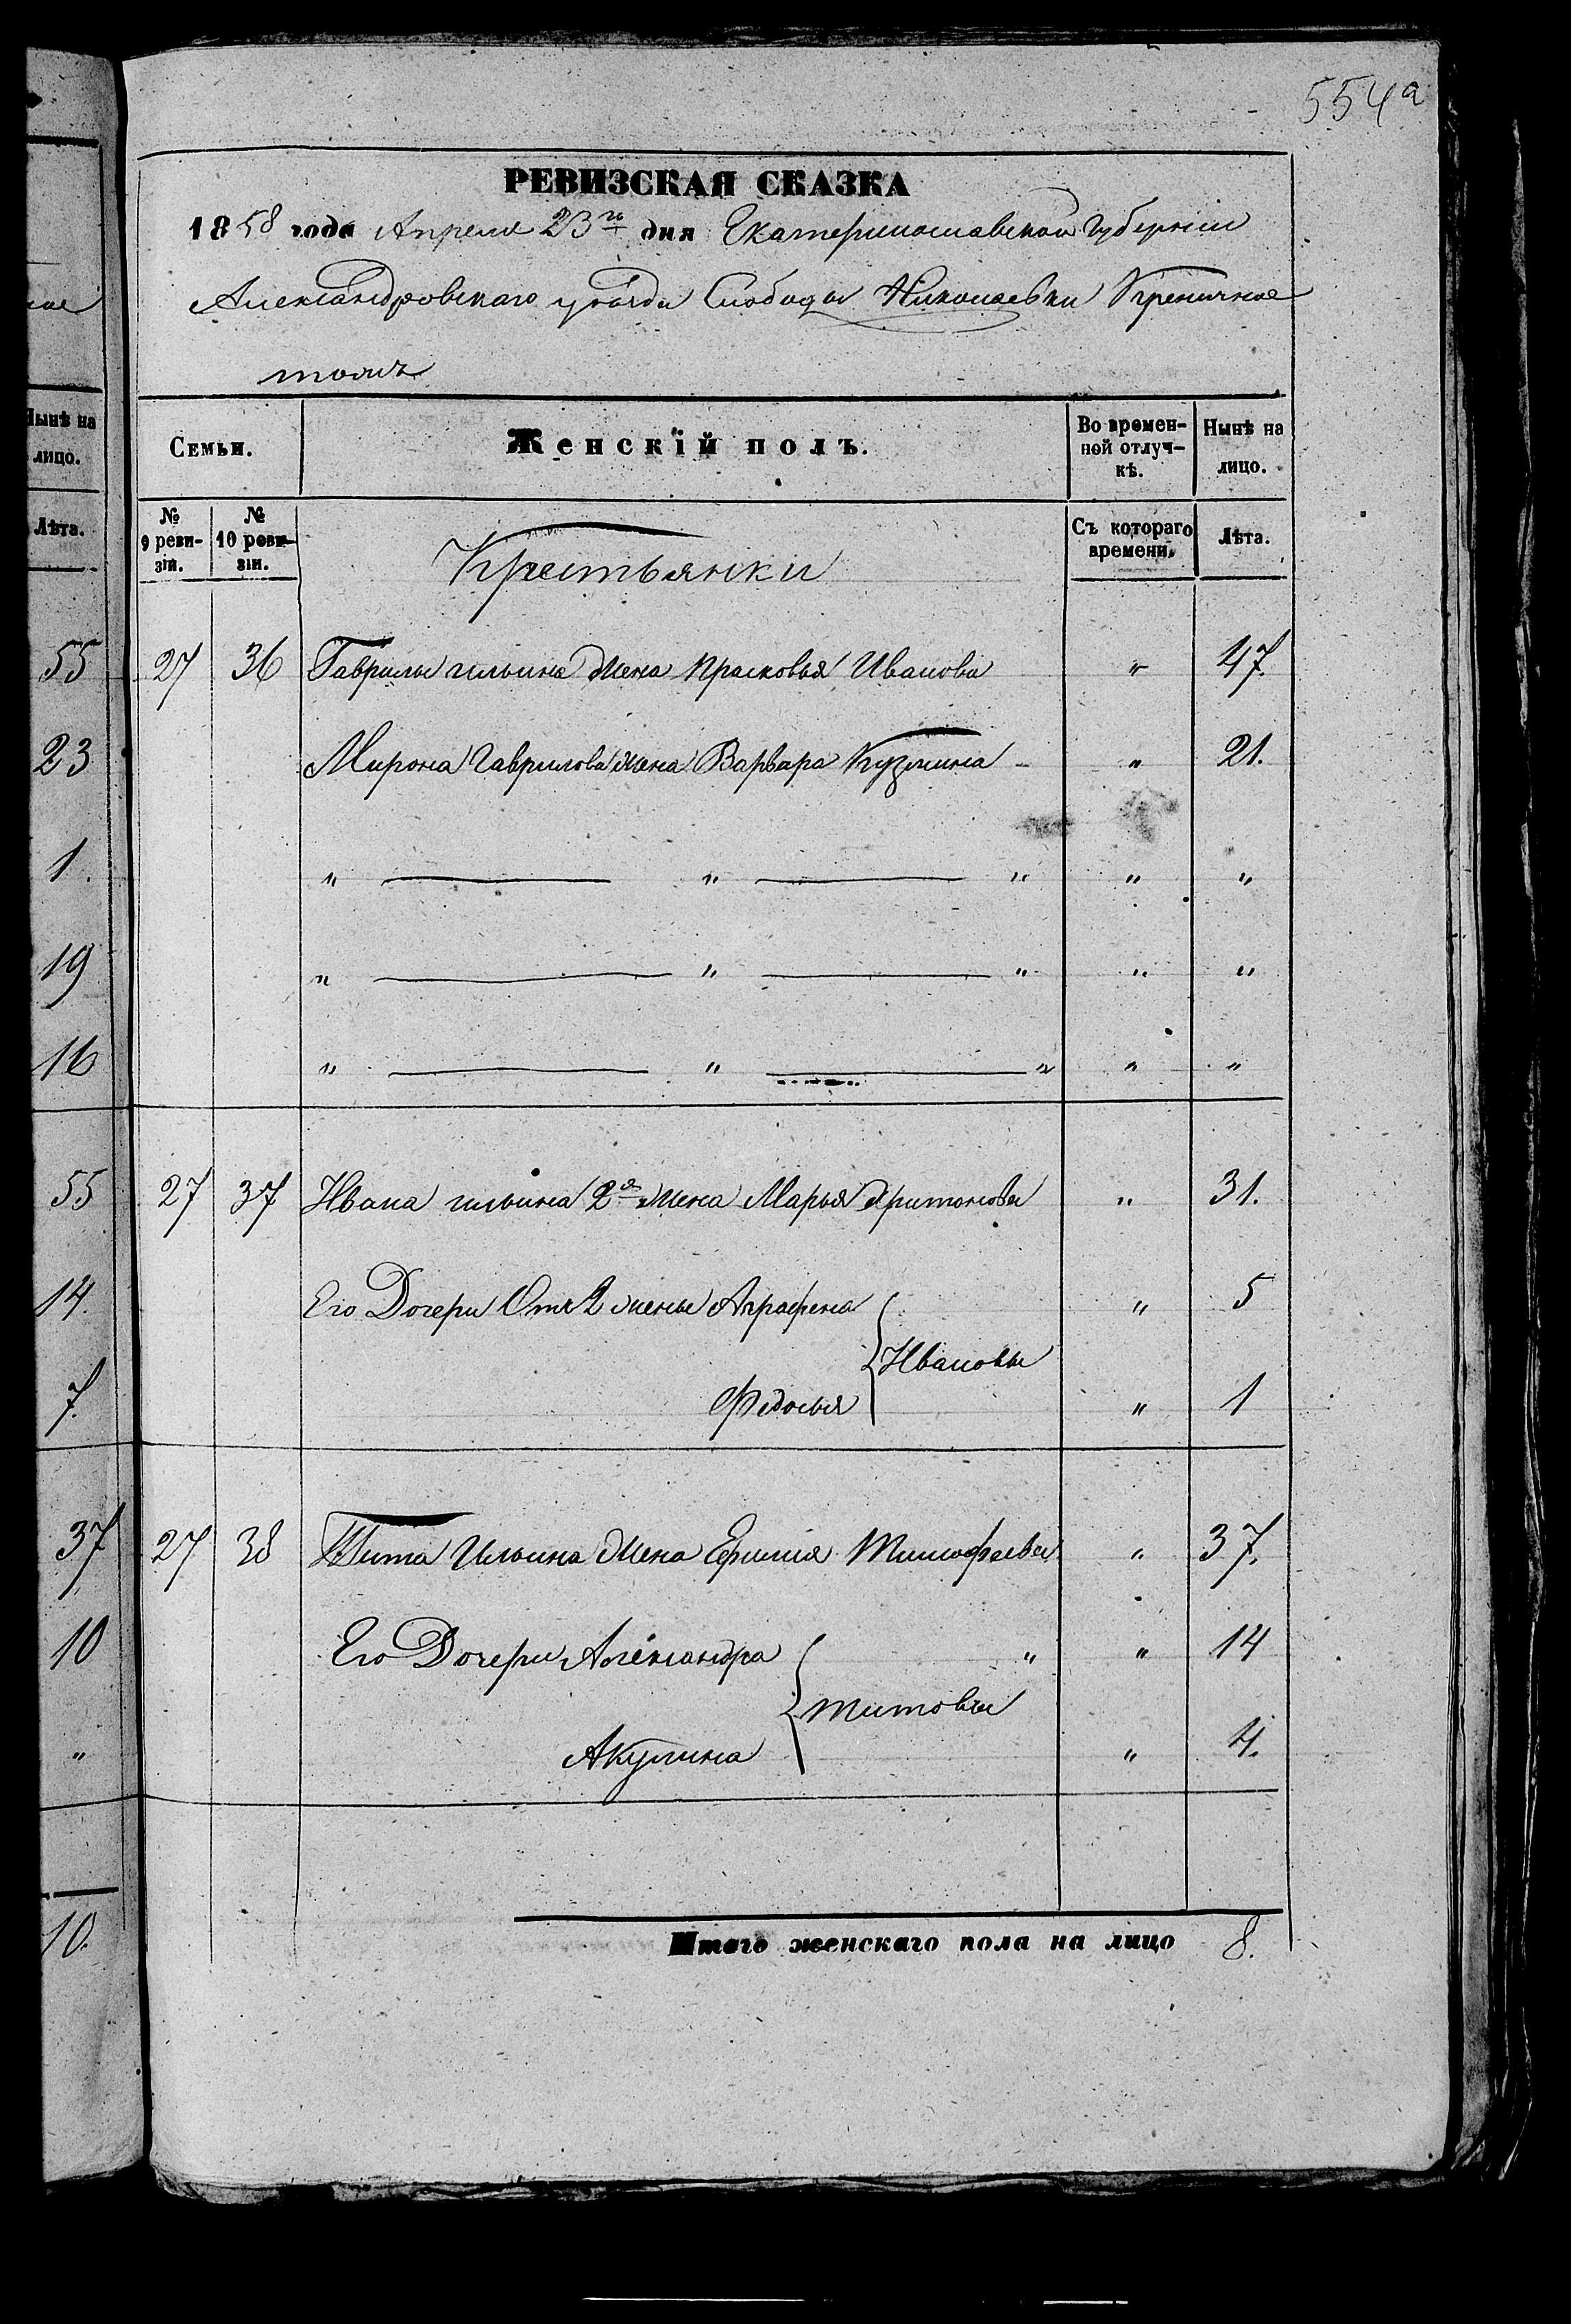 554а
РЕВИЗСКАЯ СКАЗКА
1858 года Апреля 23го дня Екатеринославской Губернии
Александровскаго уѣзда Слободы Николаевки
тожъ
Ныне на лицо.
Лѣта.
55
23
1.
19
16
55
14.
7.
37
10
"
10.
Семьи. Женскій полъ. Во временной отлучкѣ. Нынѣ на лицо.
№ 9 ревизіи. № 10 ревизіи. Крестьянки Съ котораго времени. Лѣта.
27 36 Гаврилы ильина жена Прасковья Иванова " 47.
Мирона Гаврилова жена Варвара Кузмина - " 21.
" — " — " " "
" — " — " " "
" — " — " " "
27 37 Ивана ильина 2я жена Марья Харитонова " 31.
Его Дочери Отъ 2 жены Аграфена " 5
Ивановы
Федосья " 1
27 38 Тита Ильина жена Тимофеева " 37.
Его Дочери Александра " " 14
Титовы
Акулина " 4.
Итого женскаго пола на лицо 8.